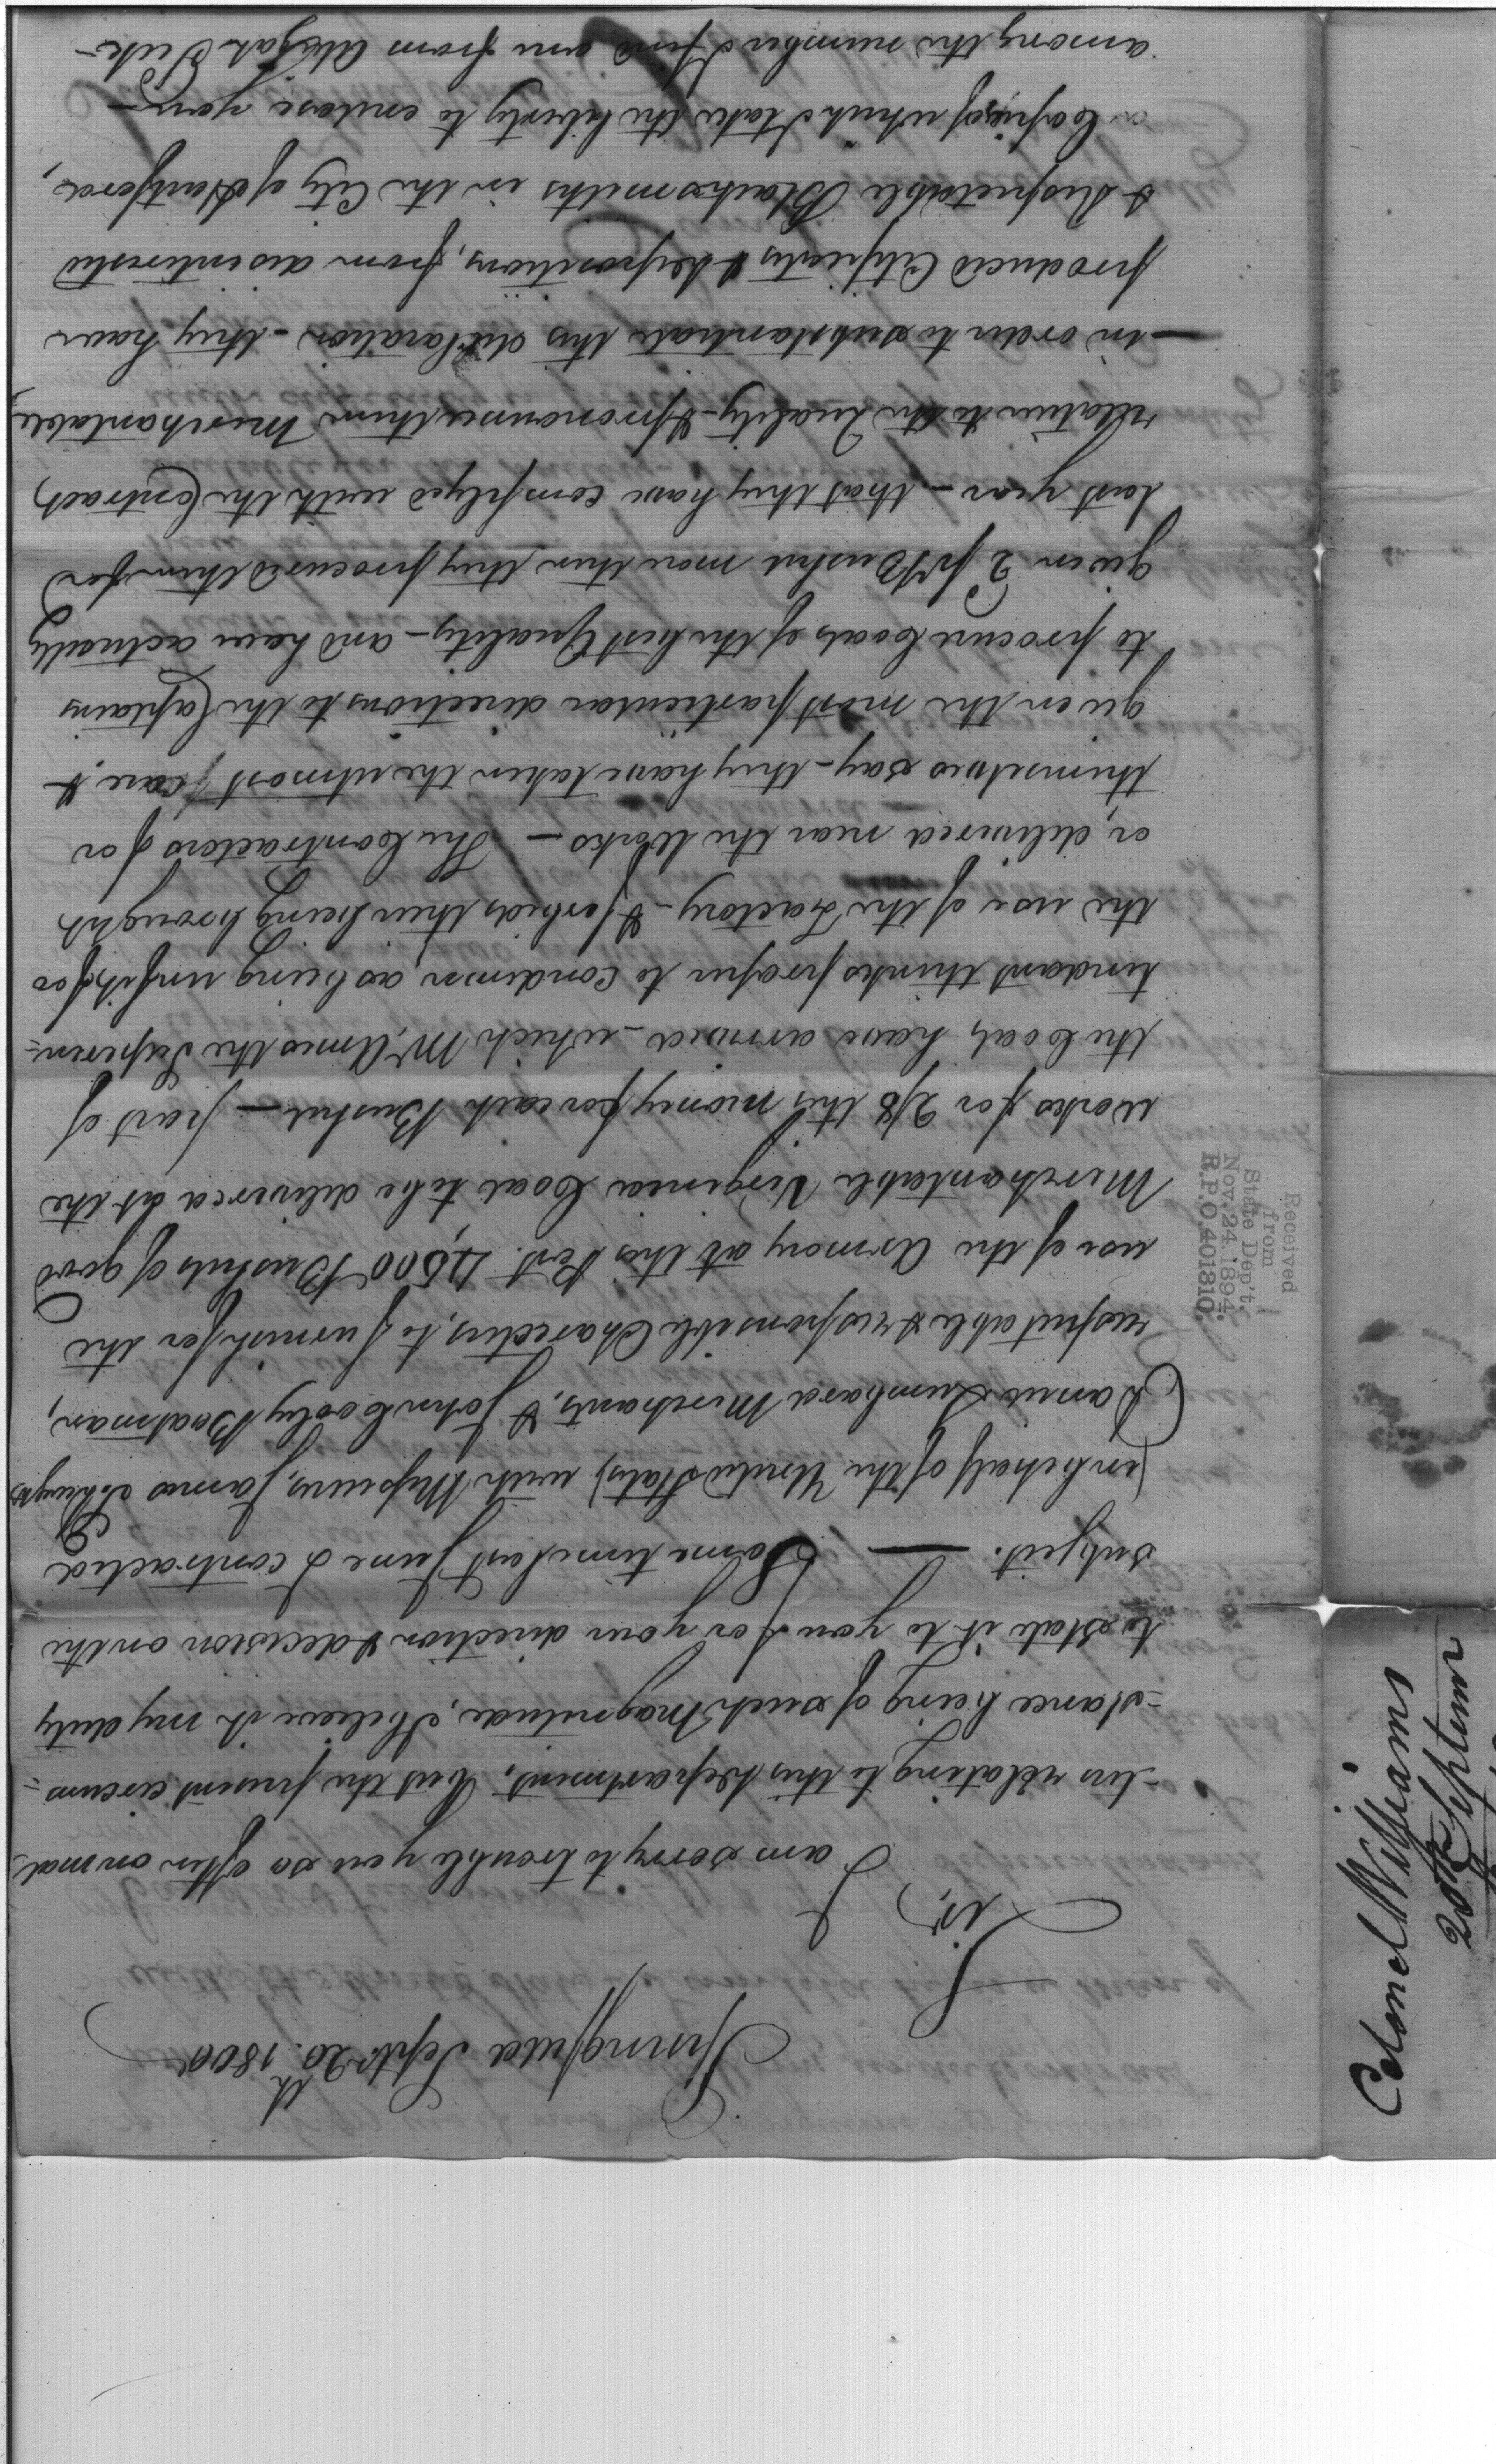 Springfield Septr. 20th. 1800
Sir,
I am sorry to trouble you so often on mat-
-ters relating to this Department, but the present circum-
-stance being of such Magnitude, I believe it my duty
to state it to you for your direction & decision on the
subject. — Some time last June I contracted
(in behalf of the United States) with Messieurs, James
Daniel Lumbard Merchants, & John Cooley Boatman,
respectable & responsible Charecters, to furnish for the
use of the Armory at this Post. 4,500 Bushels of good
Merchantable Virginia Coal to be delivered at the
works for 2/8 this money for each Bushel — part of
the Coal, have arrived - which Mr. Ames the Superin-
tendant thinks proper to condemn, as being unfit for
the use of the Factory - & forbids their being brought
or, delivered near the Works — The Contractors for
themselves say - they have taken the utmost care, &
given the most particular directions to the Captains
to procure Coals of the best Quality - and have actually
given 2d pr. Bushel more than they procured them for
last year - that they have complyed with the Contract,
relative to the Quality - & pronounce them Merchantable,
— in order to substantiate this declaration - they have
produced Certificates & depositions, from disinterested
& Respectable Blacksmiths in the City of Hartford,
Copies of which I take the liberty to enclose you —
among the number I find one from
Received
from
State Dep't.
Nov. 24, 1894.
R.P.O. 401810.
Colonel Williams
20th September